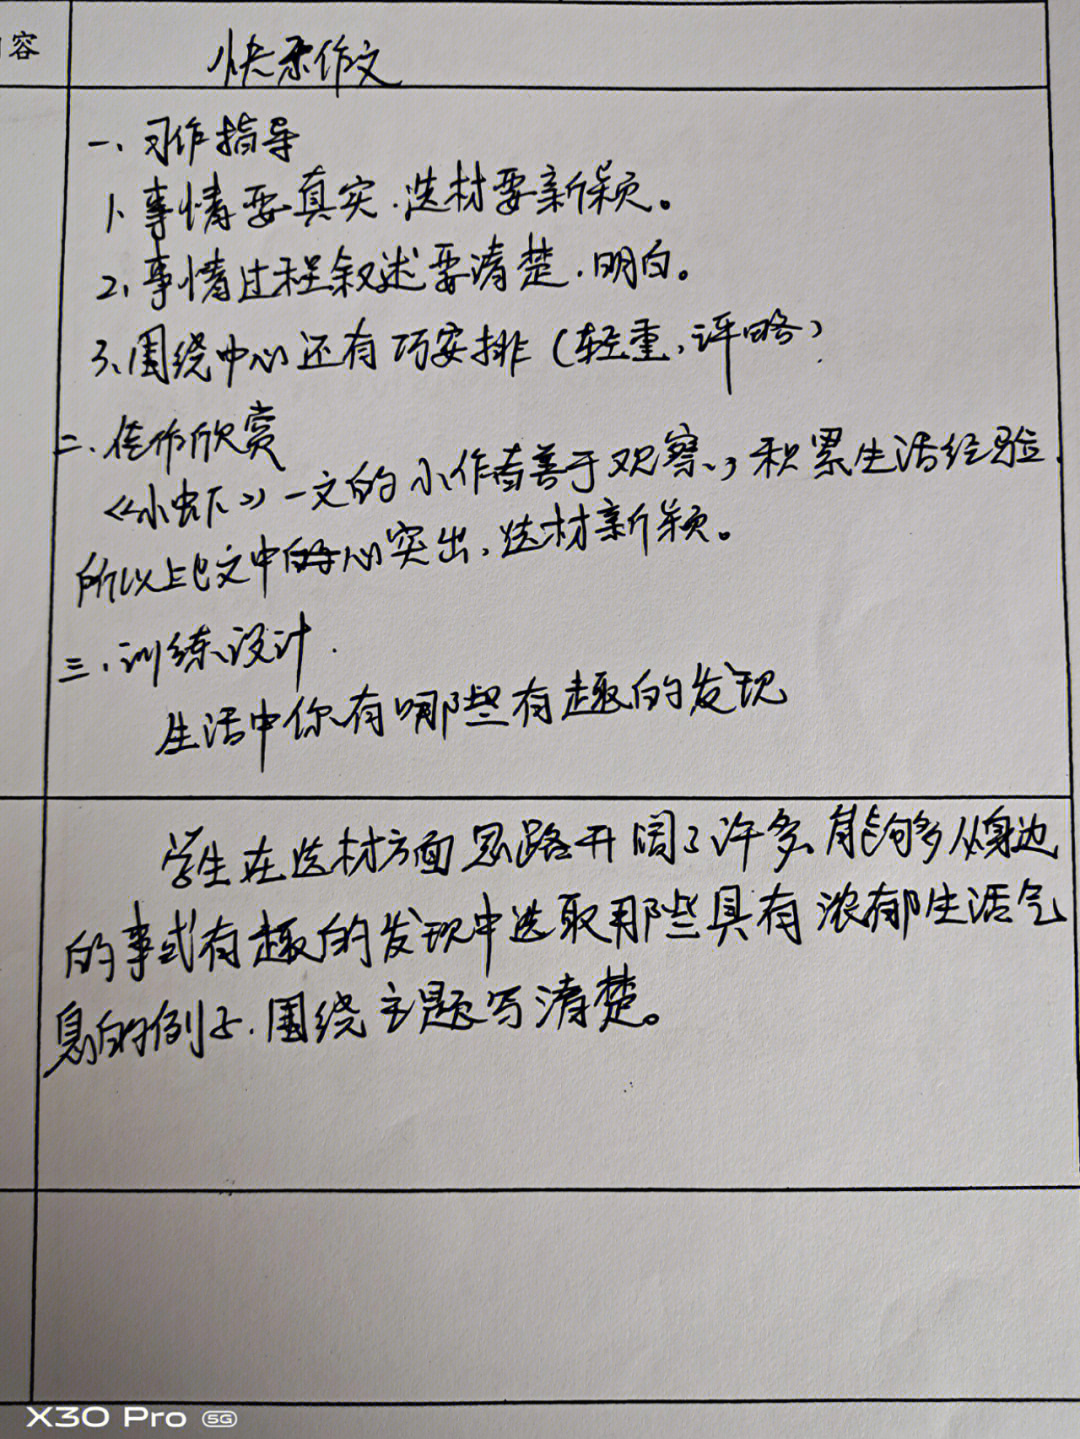 容
快乐作文
一、习作指导
1、事情要真实、选材要新颖。
2、事情过程叙述要清楚、明白。
3、围绕中心还有巧安排（轻重，详略）
二、佳作欣赏
《小虫下》一文的小作者善于观察，积累生活经验，
所以上文中心突出，选材新颖。
三、训练设计.
生活中你有哪些有趣的发现
学生在选材方面思路开阔了许多，能够多从身边
的事或有趣的发现中选取那些具有浓郁生活气
息的例子，围绕主题写清楚。
X30 Pro 5G